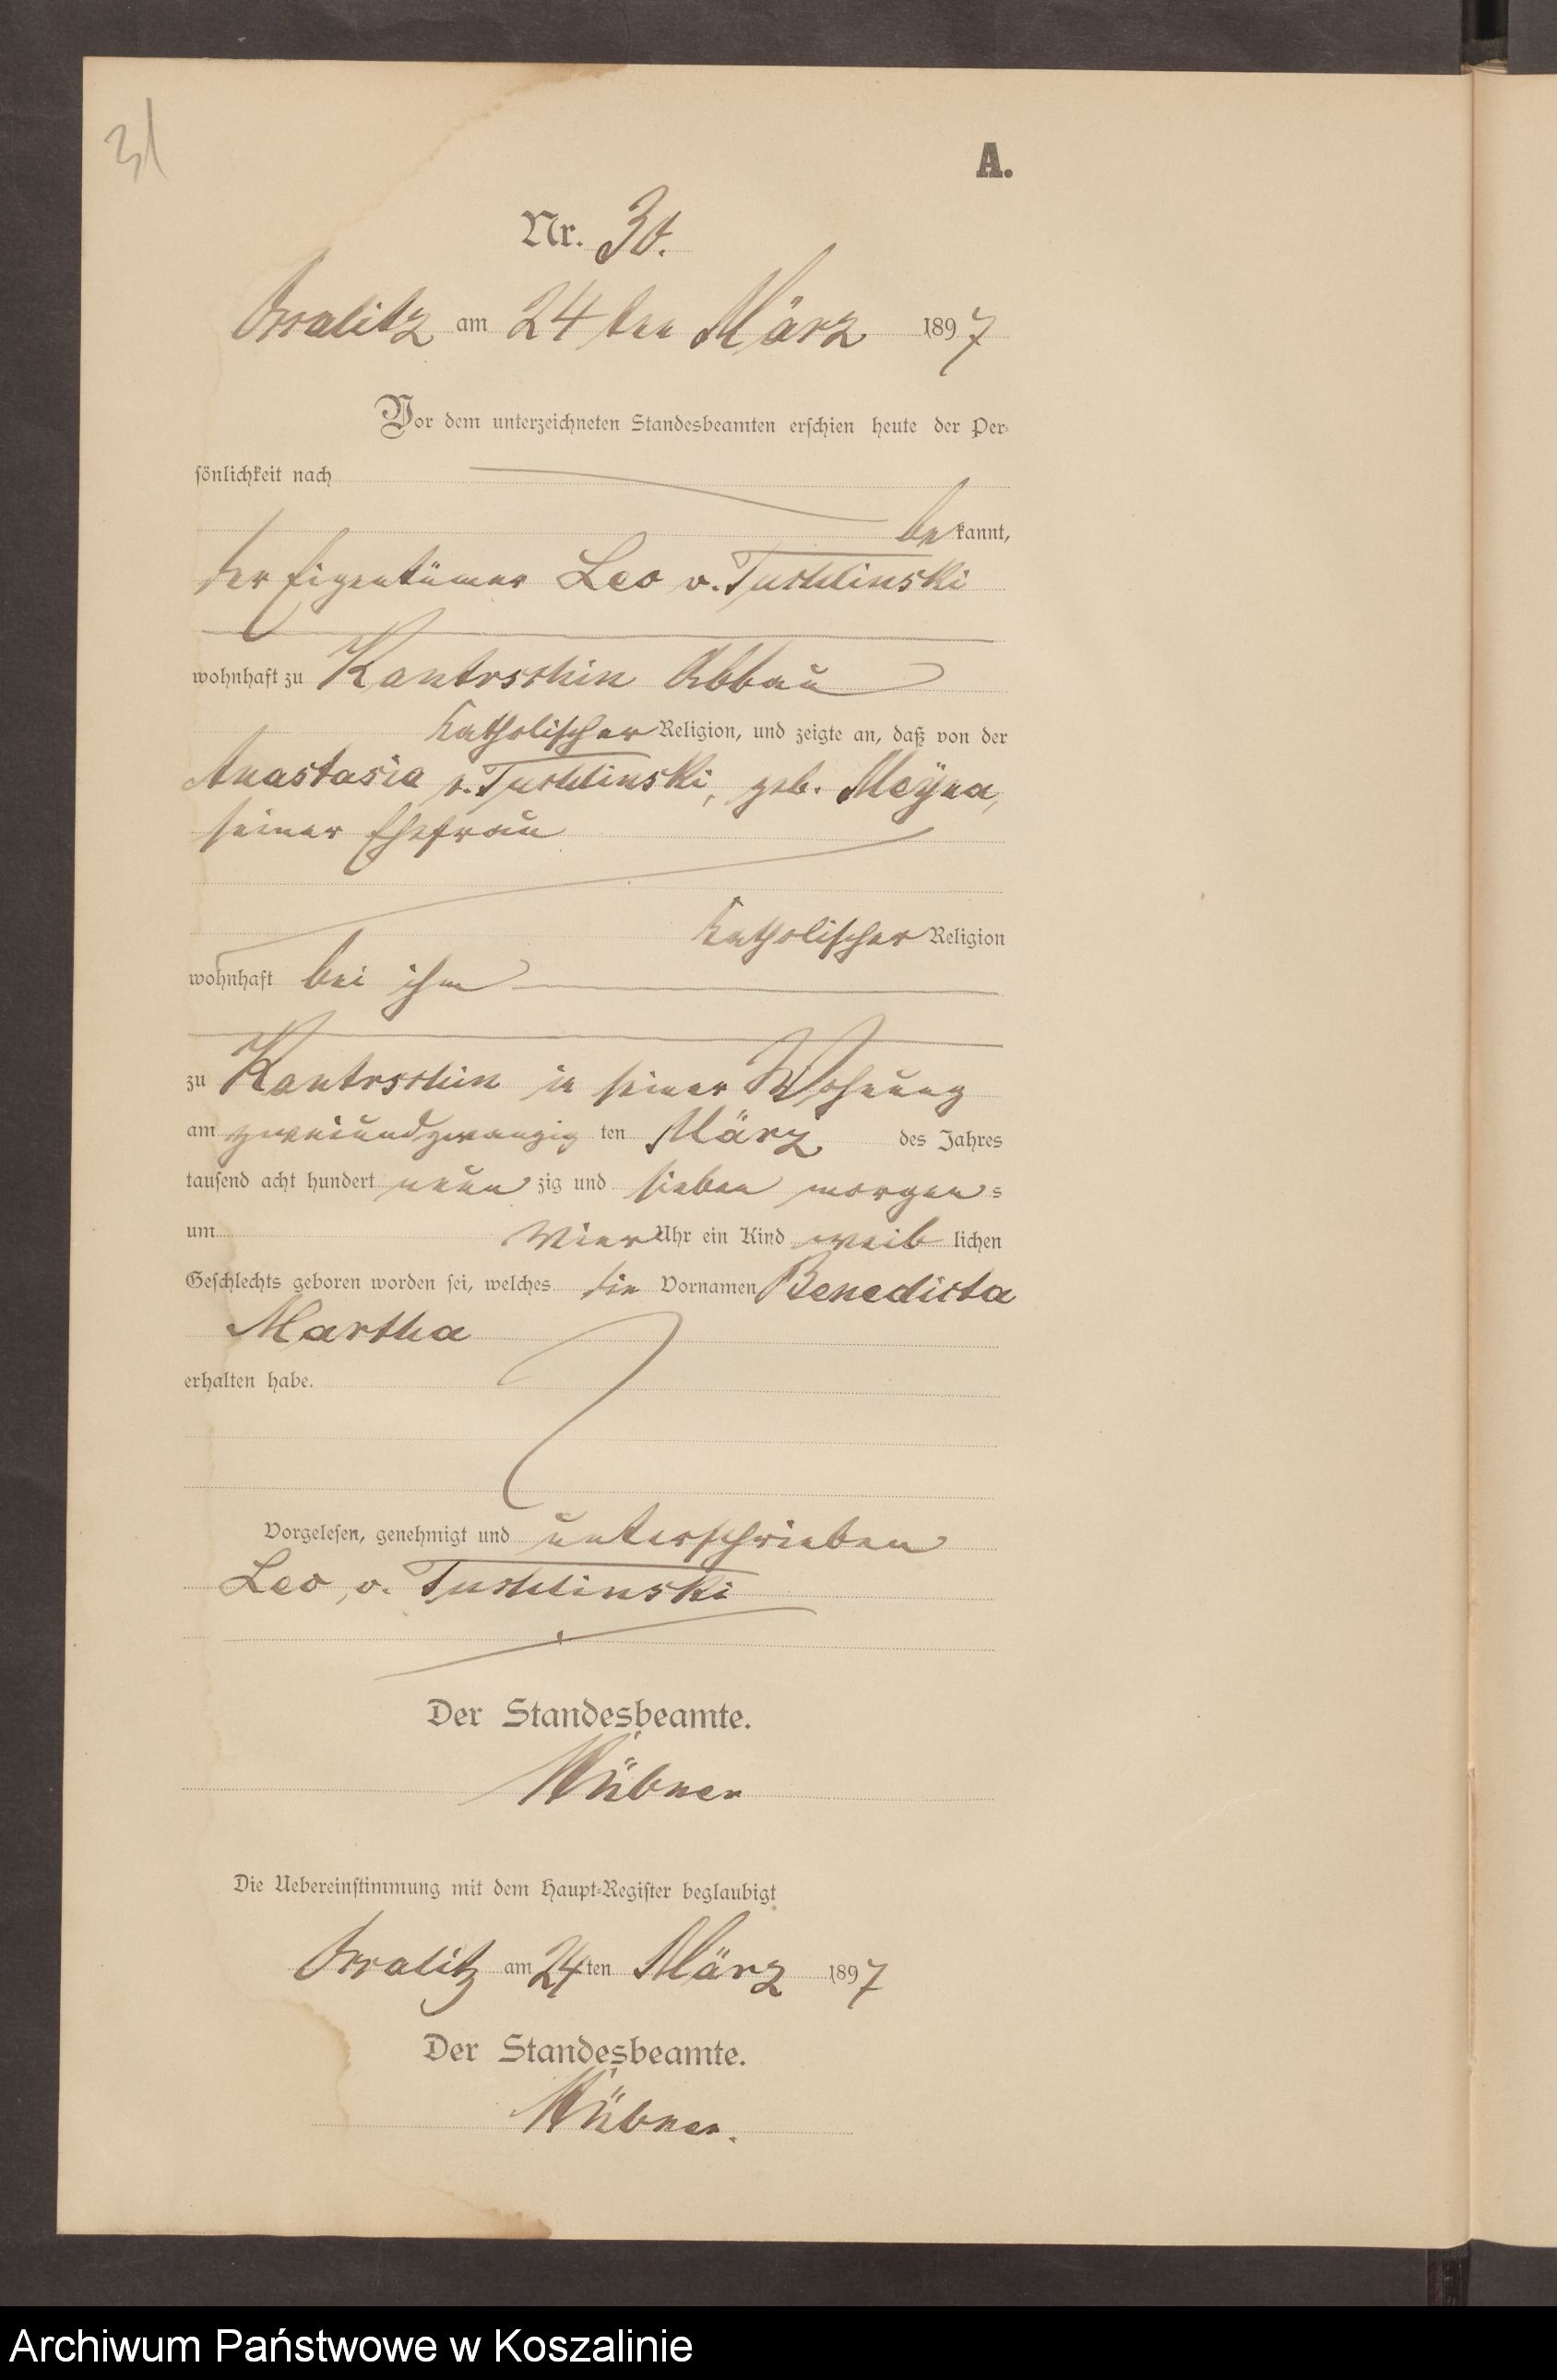 31
A.
Nr. 30.
Ossalitz am 24 ten März 1897
Vor dem unterzeichneten Standesbeamten erschien heute der Per-
sönlichkeit nach
bekannt,
der Eigentümer Leo v. Tuchlinski
wohnhaft zu Kantrschin Abbau
katholischer Religion, und zeigte an, daß von der
Anastasia v. Tuchlinski, geb. Meÿna,
seiner Ehefrau
katholischer Religion
wohnhaft bei ihm
zu Kantrschin in seiner Wohnung
am zweiundzwanzig ten März des Jahres
tausend acht hundert neun zig und sieben morgens
um vier Uhr ein Kind weib lichen
Geschlechts geboren worden sei, welches die Vornamen Benedicta
Martha
erhalten habe.
Vorgelesen, genehmigt und unterschrieben
Leo, v. Tuchlinski
Der Standesbeamte.
Hübner
Die Uebereinstimmung mit dem Haupt-Register beglaubigt
Ossalitz am 24ten März 1897
Der Standesbeamte.
Hübner.
Archiwum Państwowe w Koszalinie